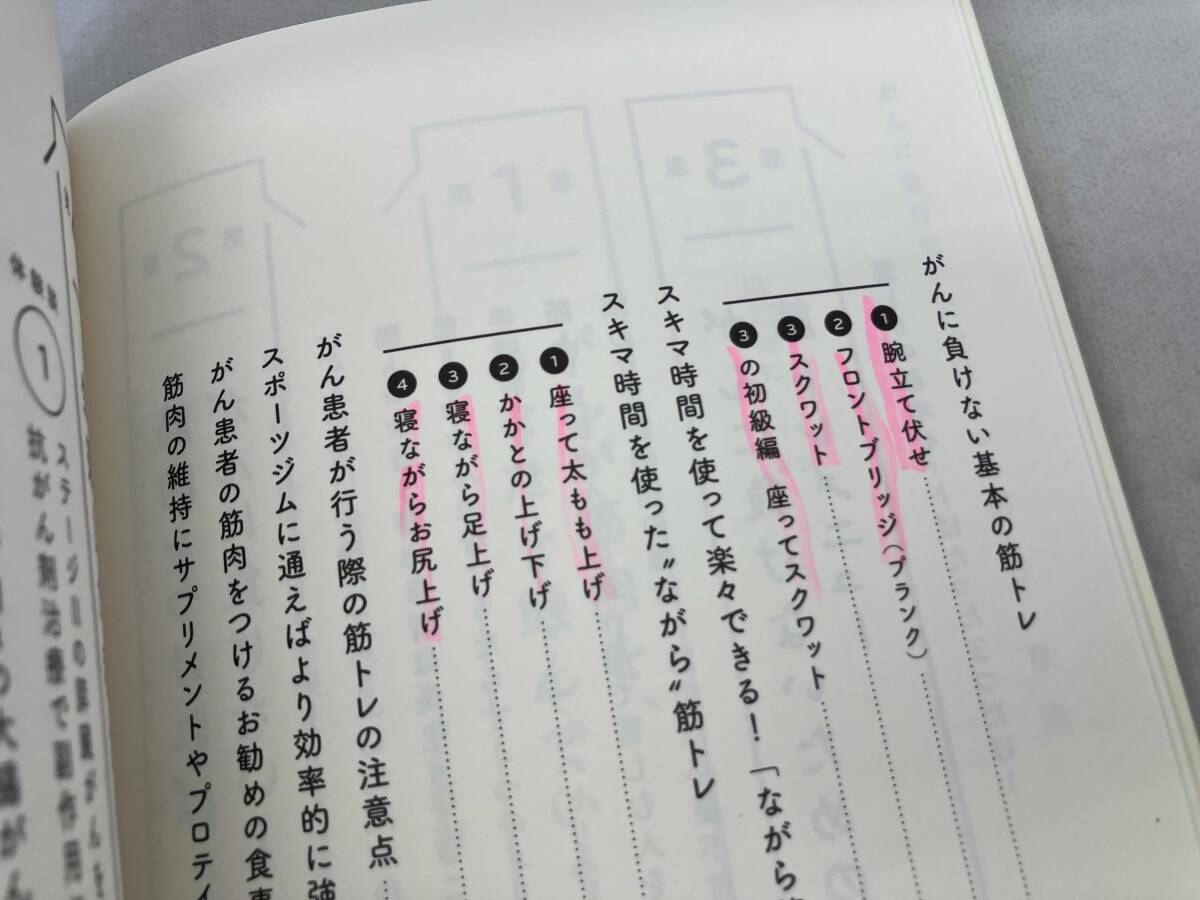 がんに負けない基本の筋トレ
❶腕立て伏せ
❷フロントブリッジ(プランク)
❸スクワット
❸の初級編 座ってスクワット
スキマ時間を使って楽々できる!「ながら
スキマ時間を使った〝ながら〟筋トレ
❶座って太もも上げ
❷かかとの上げ下げ
❸寝ながら足上げ
❹寝ながらお尻上げ
がん患者が行う際の筋トレの注意点
スポーツジムに通えばより効率的に強
がん患者の筋肉をつけるお勧めの食事
筋肉の維持にサプリメントやプロテイ
体験談
1
ステージ
抗がん剤治療で副作用
の大腸がん
第3章
第1章
第2章